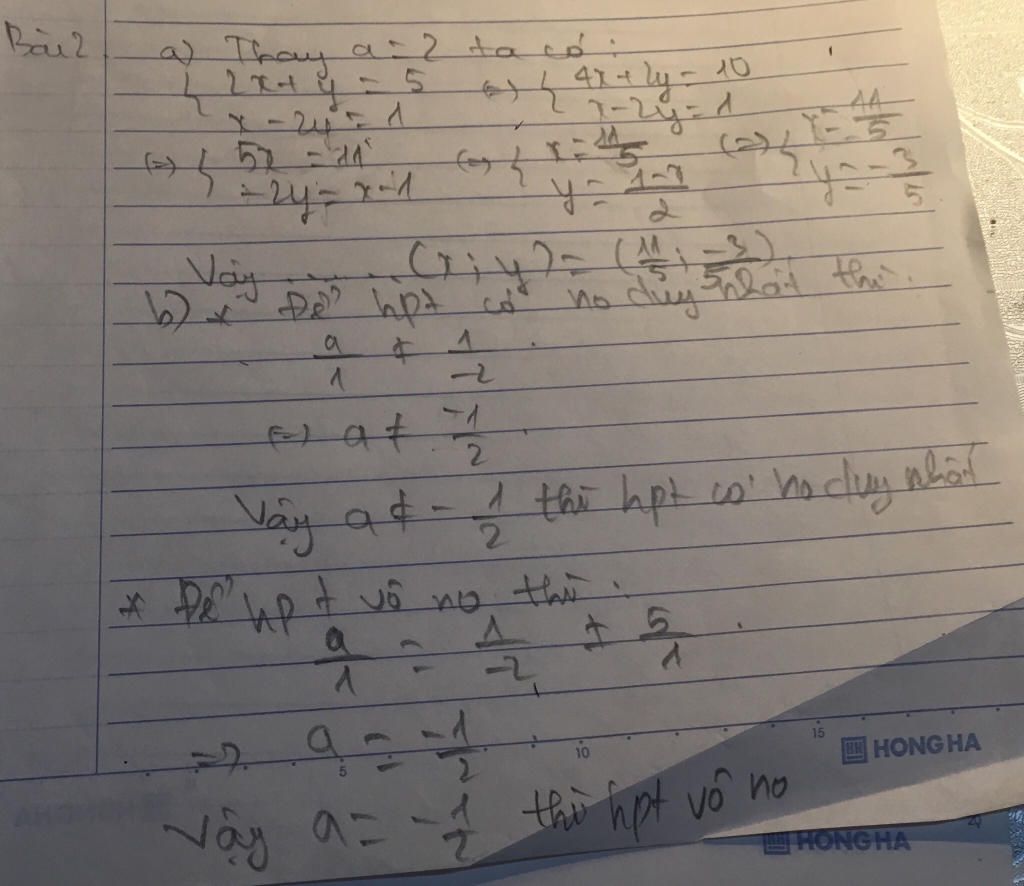 Bài 2 a) Thay a = 2 ta có:
{ 2x + y = 5 (=) { 4x + 2y = 10
x - 2y = 1 x - 2y = 1
(=) { 5x = 11 (=) { x = 11/5 (=) { x = 11/5
-2y = x - 1 y = 1-x/2 y = -3/5
Vậy ...... (x; y) = (11/5; -3/5)
b) * Để hpt có no duy nhất thì:
a/1 ≠ 1/-2
(=) a ≠ -1/2
Vậy a ≠ -1/2 thì hpt có no duy nhất
* Để hpt vô no thì:
a/1 = 1/-2 ≠ 5/1
=> a = -1/2
5 10 15 HONG HA
Vậy a = -1/2 thì hpt vô no
20
HONG HA